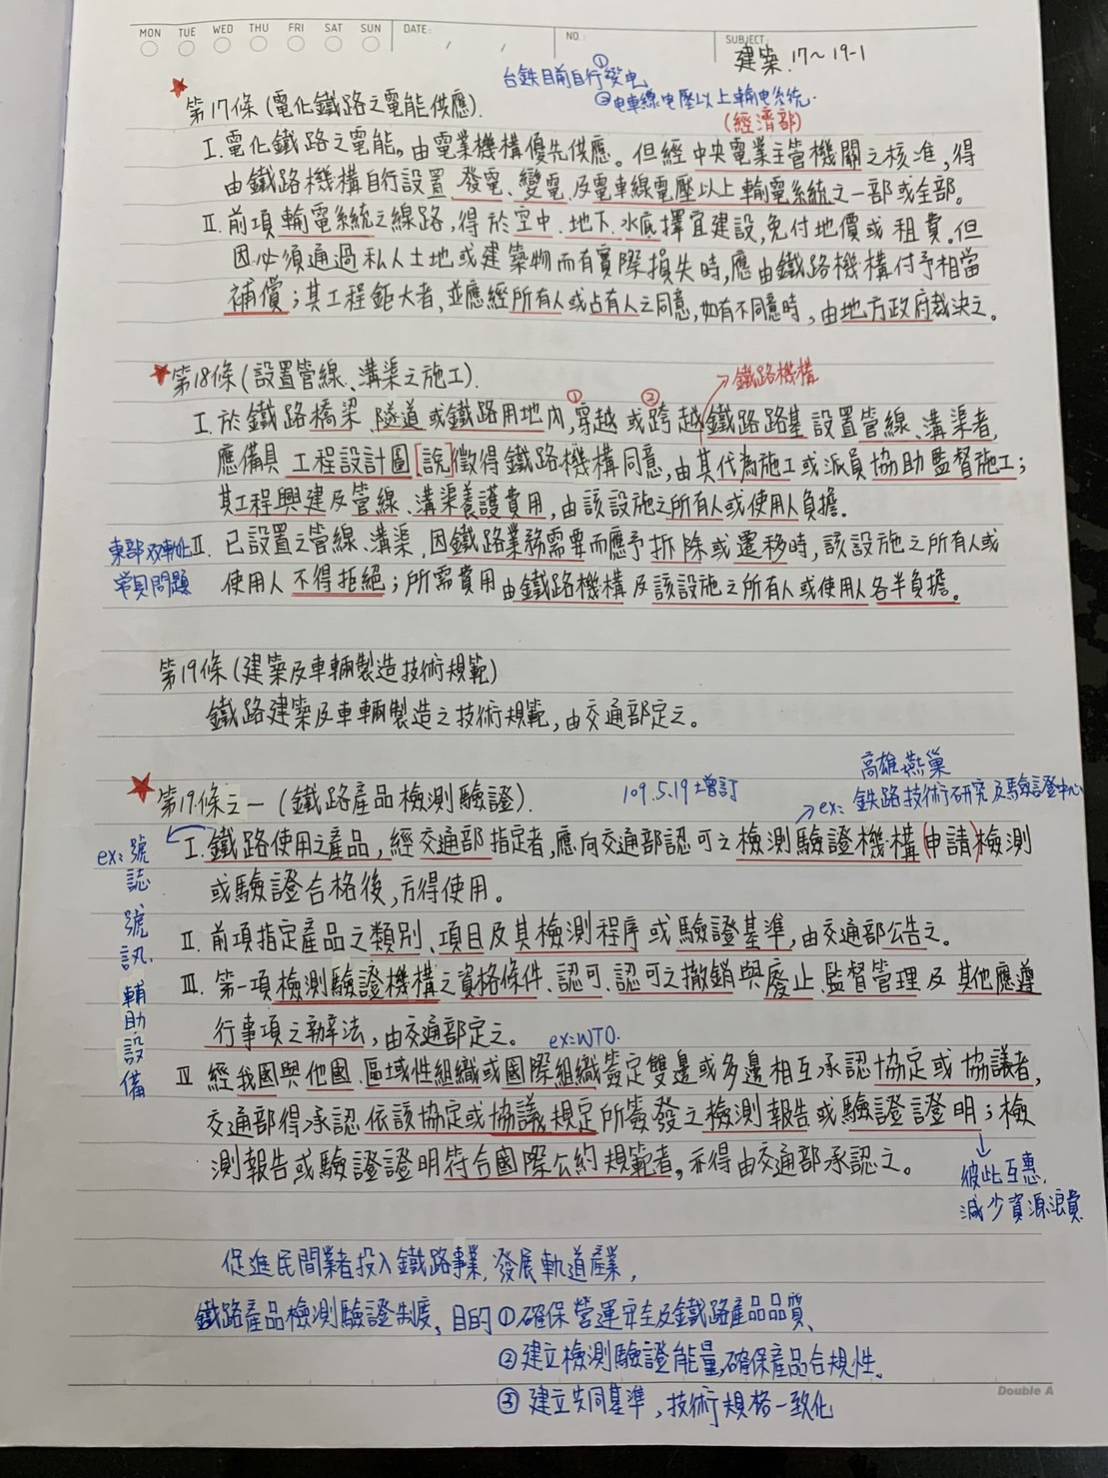 MON TUE WED THU FRI SAT SUN DATE: / / NO. SUBJECT:
建築.17～19-1
台鉄目前①自行發电
②电車線电壓以上輸电系統.
(經濟部)
★第17條(電化鐵路之電能供應).
I.電化鐵路之電能,由電業機構優先供應。但經中央電業主管機關之核准,得
由鐵路機構自行設置發電、變電及電車線電壓以上輸電系統之一部或全部。
II.前項輸電系統之線路,得於空中、地下、水底擇宜建設,免付地價或租費。但
因必須通過私人土地或建築物而有實際損失時,應由鐵路機構付予相當
補償;其工程鉅大者,並應經所有人或占有人之同意,如有不同意時,由地方政府裁決之。
★第18條(設置管線、溝渠之施工).
→鐵路機構
① ②
I.於鐵路橋梁、隧道或鐵路用地內,穿越或跨越鐵路路基設置管線、溝渠者,
應備具工程設計圖[說]徵得鐵路機構同意,由其代為施工或派員協助監督施工;
其工程興建及管線、溝渠養護費用,由該設施之所有人或使用人負擔.
東部双軌化
常見問題
II.已設置之管線、溝渠,因鐵路業務需要而應予拆除或遷移時,該設施之所有人或
使用人不得拒絕;所需費用由鐵路機構及該設施之所有人或使用人各半負擔。
第19條(建築及車輛製造技術規範)
鐵路建築及車輛製造之技術規範,由交通部定之。
高雄燕巢
★第19條之一(鐵路產品檢測驗證). 109.5.19增訂
→ex:鉄路技術研究及驗證中心
I.鐵路使用之產品,經交通部指定者,應向交通部認可之檢測驗證機構(申請)檢測
或驗證合格後,方得使用。
ex:號誌、號訊、輔助設備
II.前項指定產品之類別、項目及其檢測程序或驗證基準,由交通部公告之。
III.第一項檢測驗證機構之資格條件、認可、認可之撤銷與廢止、監督管理及其他應遵
行事項之辦法,由交通部定之。
ex:WTO.
IV 經我國與他國、區域性組織或國際組織簽定雙邊或多邊相互承認協定或協議者,
交通部得承認依該協定或協議規定所簽發之檢測報告或驗證證明;檢
測報告或驗證證明符合國際公約規範者,亦得由交通部承認之。
↓
彼此互惠.
減少資源浪費
促進民間業者投入鐵路事業,發展軌道產業,
鐵路產品檢測驗證制度,目的①確保營運安全及鐵路產品品質、
②建立檢測驗證能量,確保產品合規性、
③建立共同基準,技術規格一致化
Double A